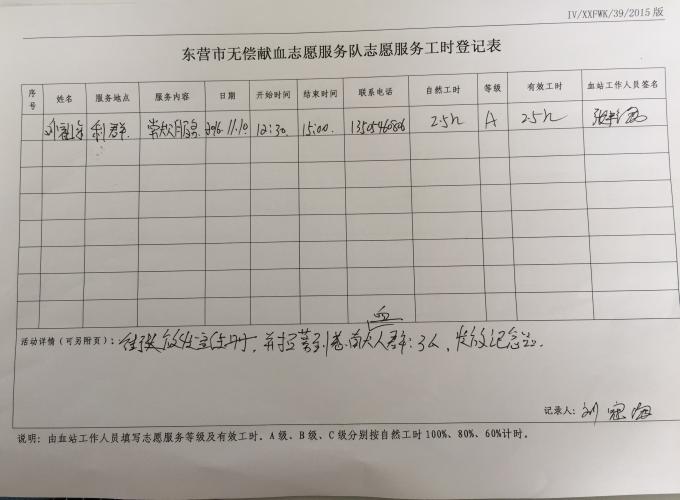 IV/XXFWK/39/2015版
东营市无偿献血志愿服务队志愿服务工时登记表
序号 姓名 服务地点 服务内容 日期 开始时间 结束时间 联系电话 自然工时 等级 有效工时 血站工作人员签名
利群 献血服务 2016.11.10 12:30 15:00 2.5h A 2.5h
血
活动详情（可另附页）： 发放宣传册，并招募引导献人群：3人，发放纪念品.
记录人：刘
说明：由血站工作人员填写志愿服务等级及有效工时。A级、B级、C级分别按自然工时100%、80%、60%计时。